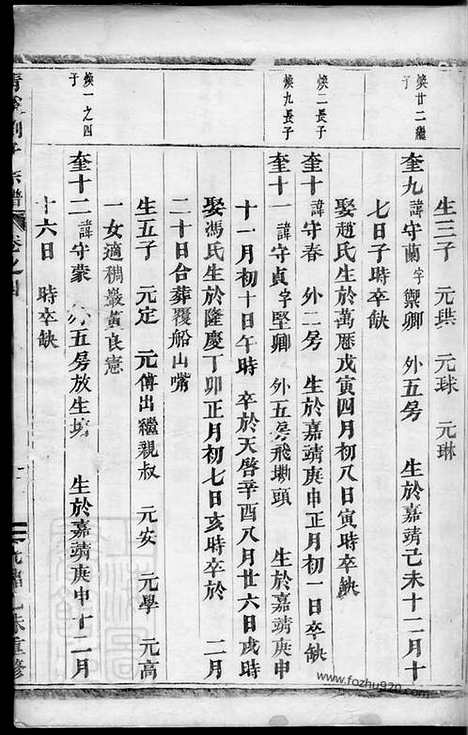 生三子　元珙　元球　元琳
煥廿二繼子
奎九　諱守蘭字禦卿　外五房　生於嘉靖己未十二月十
七日子時卒缺
娶趙氏生於萬曆戊寅四月初八日寅時卒缺
煥二長子
奎十　諱守春　外二房　生於嘉靖庚申正月初一日卒缺
煥九長子
奎十一　諱守貞字堅卿　外五房飛墈頭　生於嘉靖庚申
十一月初十日午時　卒於天啓辛酉八月廿六日戌時
娶馮氏生於隆慶丁卯正月初七日亥時卒於　二月
二十日合葬覆船山嘴
生五子　元定　元傳出繼親叔　元安　元學　元高
一女適稠巖黃良憲
煥一之四子
奎十二　諱守蒙　外五房放生塘　生於嘉靖庚申十二月
十六日　時卒缺
宗譜　卷之四
重修
www.fozhu920.com